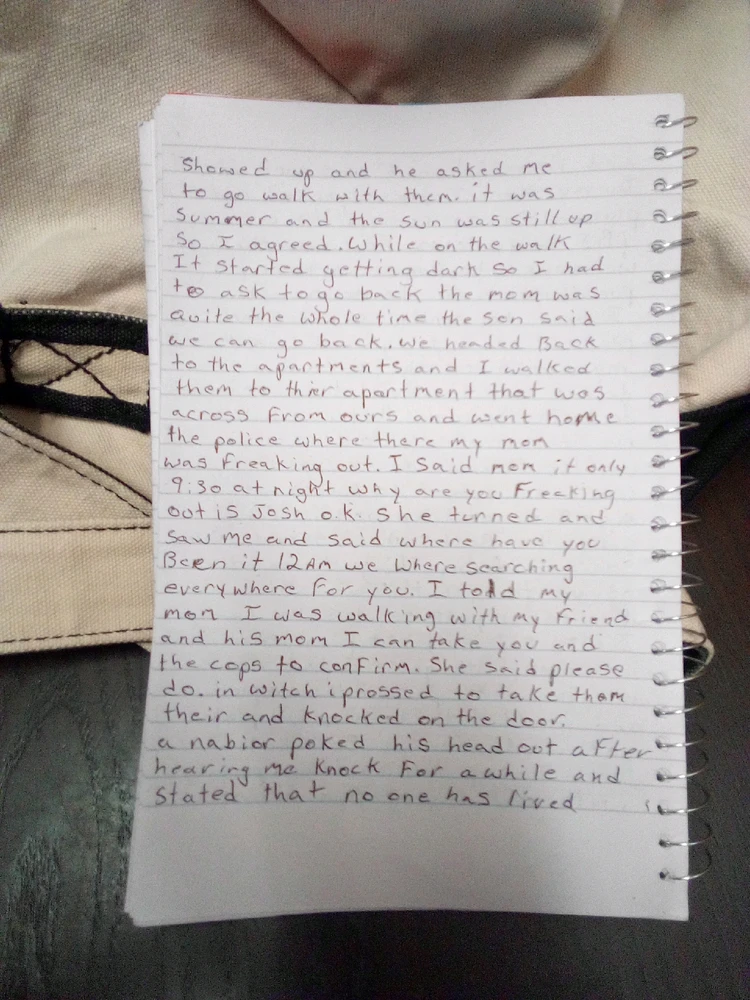 showed up and he asked me
to go walk with them. it was
summer and the sun was still up
so I agreed. While on the walk
It started getting dark so I had
to ask to go back the mom was
quite the whole time the son said
we can go back. we headed Back
to the apartments and I walked
them to thier apartment that was
across from ours and went home
the police where there my mom
was freaking out. I said mom it only
9:30 at night why are you Freaking
out is Josh o.k. she turned and
saw me and said where have you
Been it 12 AM we where searching
everywhere for you. I told my
mom I was walking with my friend
and his mom I can take you and
the cops to confirm. She said please
do. in witch i prossed to take them
their and knocked on the door.
a nabior poked his head out after
hearing me knock for a while and
stated that no one has lived